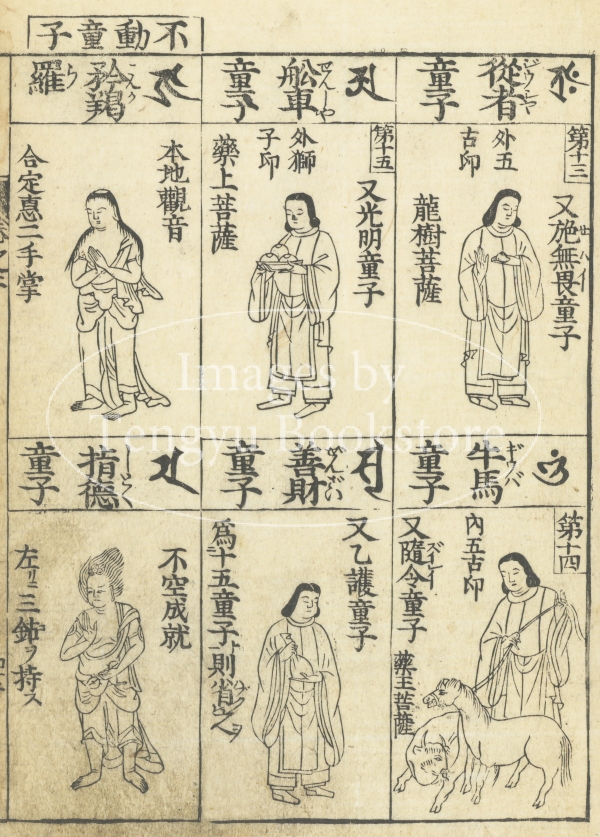 從者童子
第十三
又施無畏童子
外五
古印
龍樹菩薩
牛馬童子
ギウバ
第十四
內五古印
又隨令童子
藥王菩薩
舩車童子
第十五
又光明童子
外獅
子印
藥上菩薩
善財童子
ぜんざい
又乙護童子
爲十五童子則省之
不動童子
矜羯羅
本地觀音
合定惠二手掌
指德童子
しとく
不空成就
左リニ三鈷ヲ持ス
Images by
Tengyu Bookstore